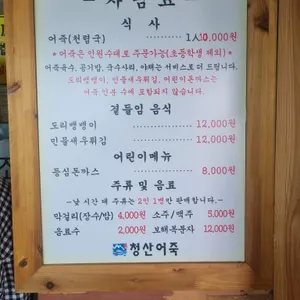 - 차림표 -
식 사
어죽(천렵국) ------------ 1人 10,000원
* 어죽은 인원수대로 주문가능(초중학생 제외) *
어죽육수, 공기밥, 국수사리, 야채는 서비스로 더 드립니다.
도리뱅뱅이, 민물새우튀김, 어린이돈까스는
어죽 인분 수에 포함되지 않습니다.
곁들임 음식
도리뱅뱅이 ------------ 12,000원
민물새우튀김 ------------ 12,000원
어린이메뉴
등심돈까스 ------------ 8,000원
주류 및 음료
-낮 시간 때 주류는 2인 1병만 판매합니다.-
막걸리(장수/밤) 4,000원 소주/맥주 5,000원
음료수 2,000원 보해복분자 12,000원
청산어죽